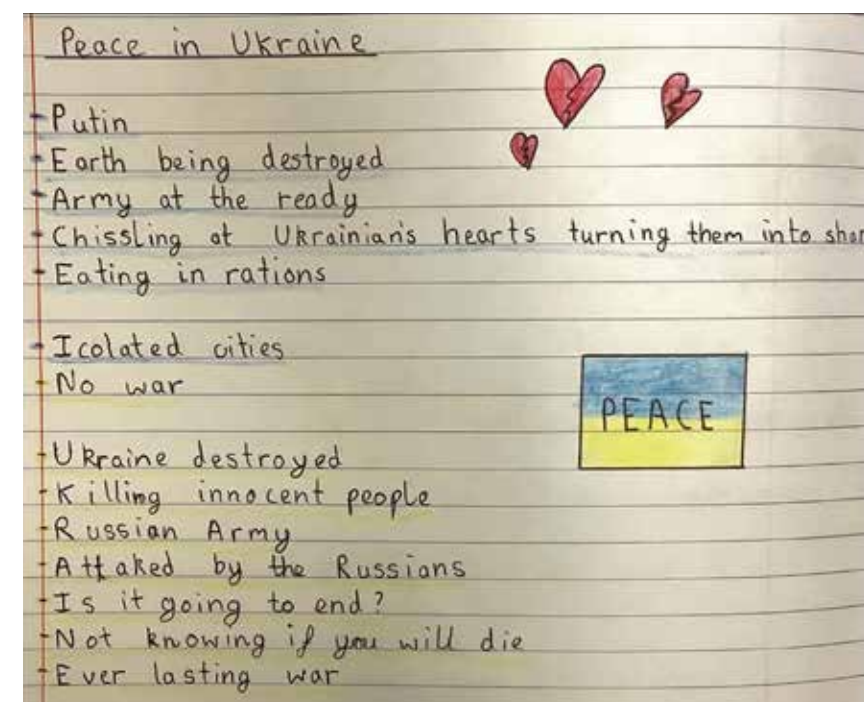 Peace in Ukraine
- Putin
- Earth being destroyed
- Army at the ready
- Chissling at Ukrainian's hearts turning them into
- Eating in rations
- Icolated cities
- No war
PEACE
- Ukraine destroyed
- Killing innocent people
- Russian Army
- Attaked by the Russians
- Is it going to end?
- Not knowing if you will die
- Ever lasting war